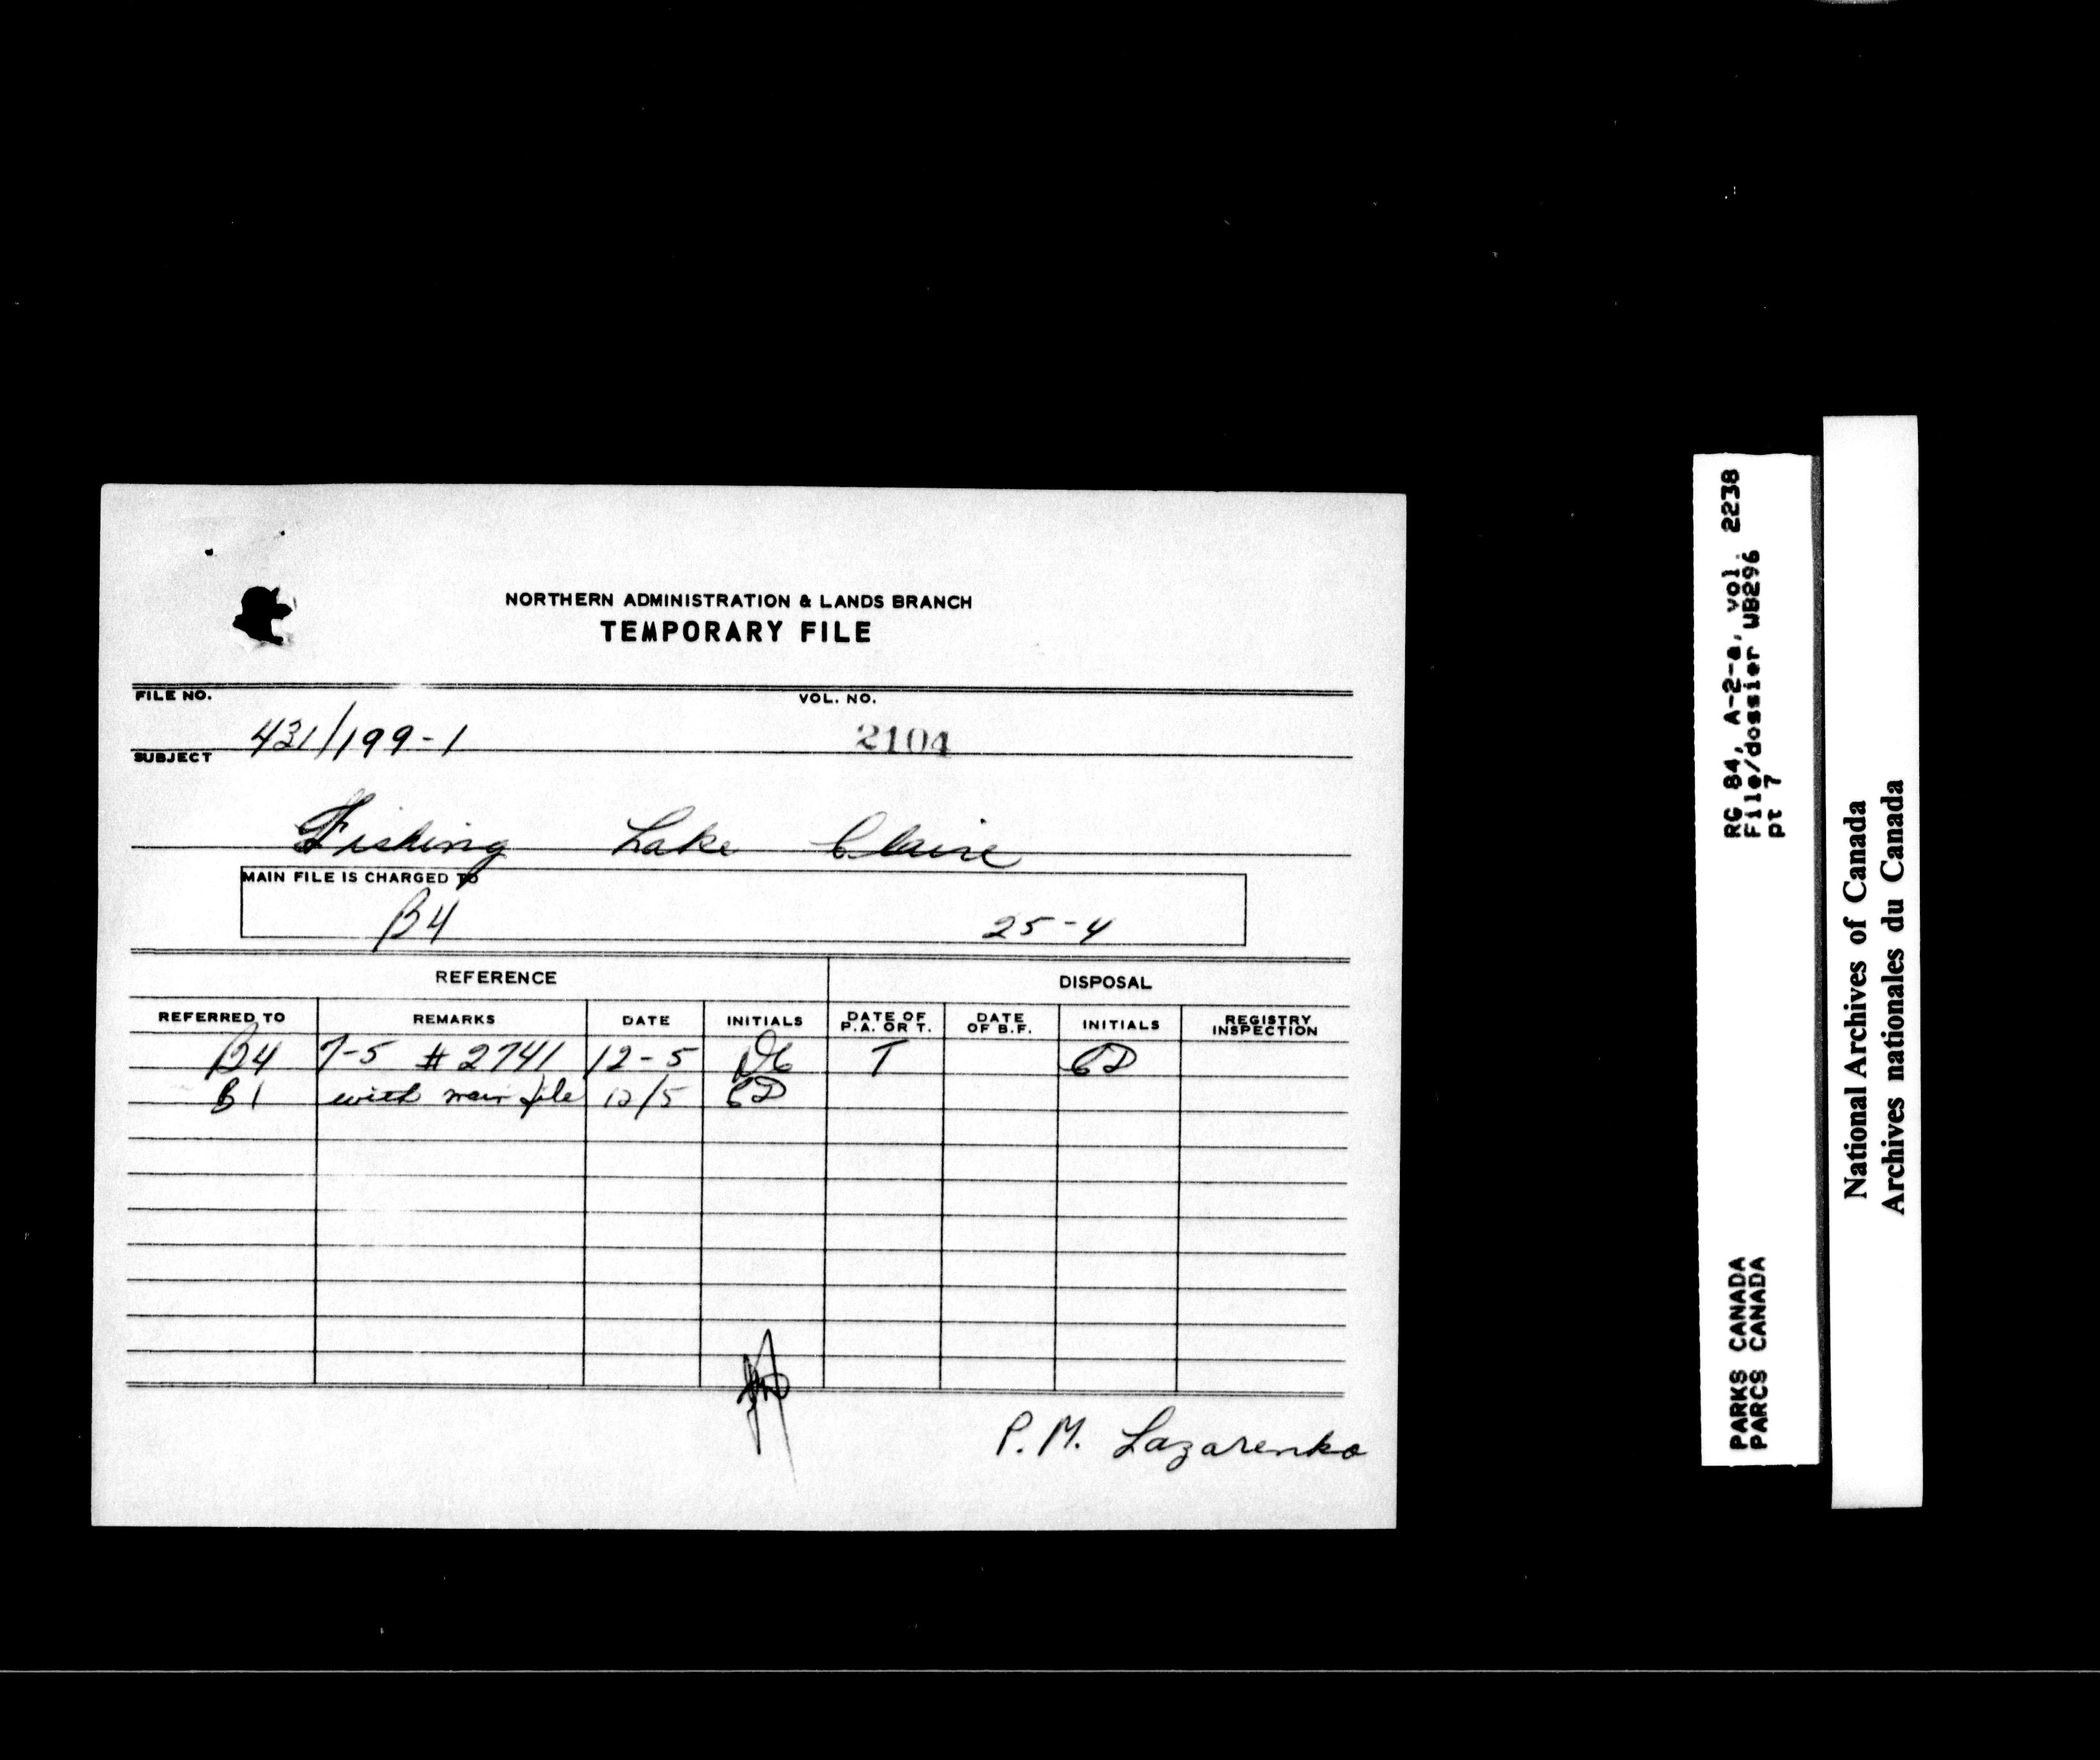 NORTHERN ADMINISTRATION & LANDS BRANCH
TEMPORARY FILE
FILE NO. VOL. NO.
431/199-1 2104
SUBJECT
Fishing Lake Claire
MAIN FILE IS CHARGED TO
B4 25-4
REFERENCE DISPOSAL
REFERRED TO REMARKS DATE INITIALS DATE OF P.A. OR T. DATE OF B.F. INITIALS REGISTRY INSPECTION
B4 7-5 # 2741 12-5 T
B1 with main file 12/5
P. M. Lazarenko
RG 84, A-2-a, vol. 2238
File/dossier WB296
pt 7
PARKS CANADA
PARCS CANADA
National Archives of Canada
Archives nationales du Canada